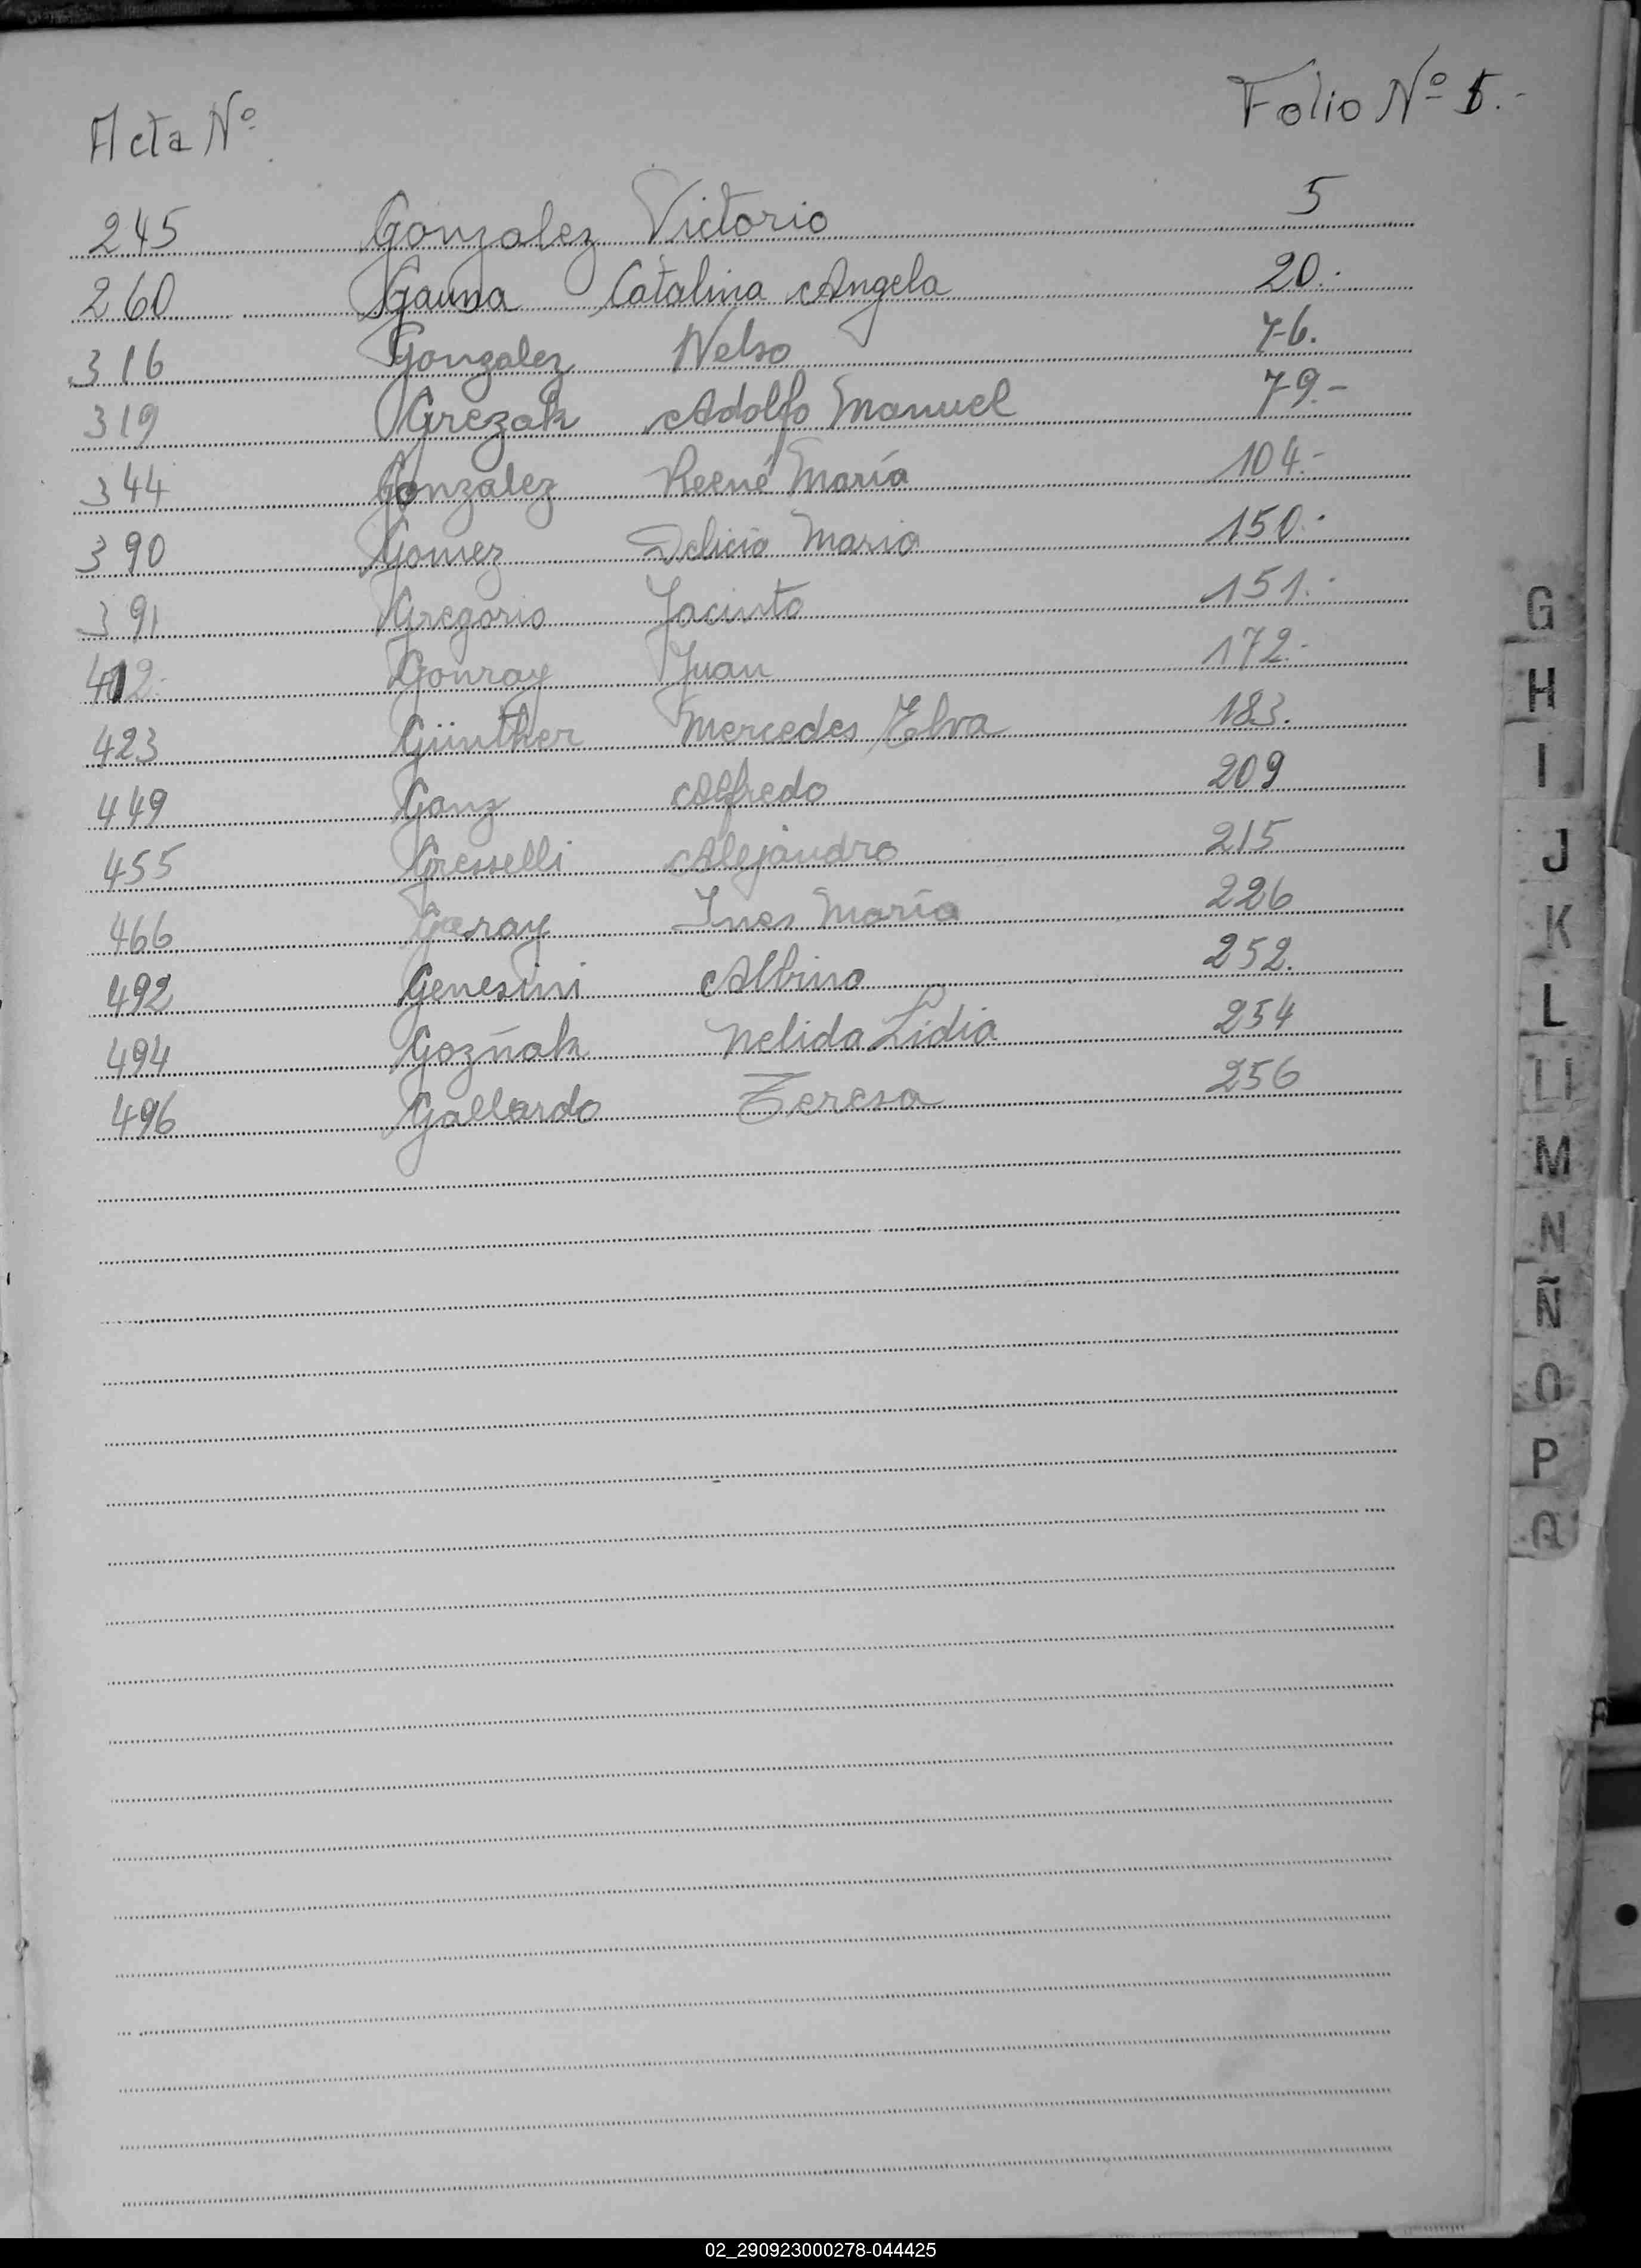 Acta Nº Folio Nº 5.-
245 Gonzalez Victorio 5
260 Gauna Catalina Angela 20.-
316 Gonzalez Nelso 76.
319 Grezak Adolfo Manuel 79.-
344 Gonzalez Reené María 104.-
390 Gomez Delicia Maria 150.-
391 Gregorio Jacinto 151.-
412 Gonray Juan 172.-
423 Günther Mercedes Elva 183.
449 Ganz Alfredo 209
455 Gresselli Alejandro 215
466 Garay Ines María 226
492 Genesini Albino 252.
494 Gozñak Nelida Lidia 254
496 Gallardo Teresa 256
G
H
I
J
K
L
Ll
M
N
Ñ
O
P
Q
02_290923000278-044425